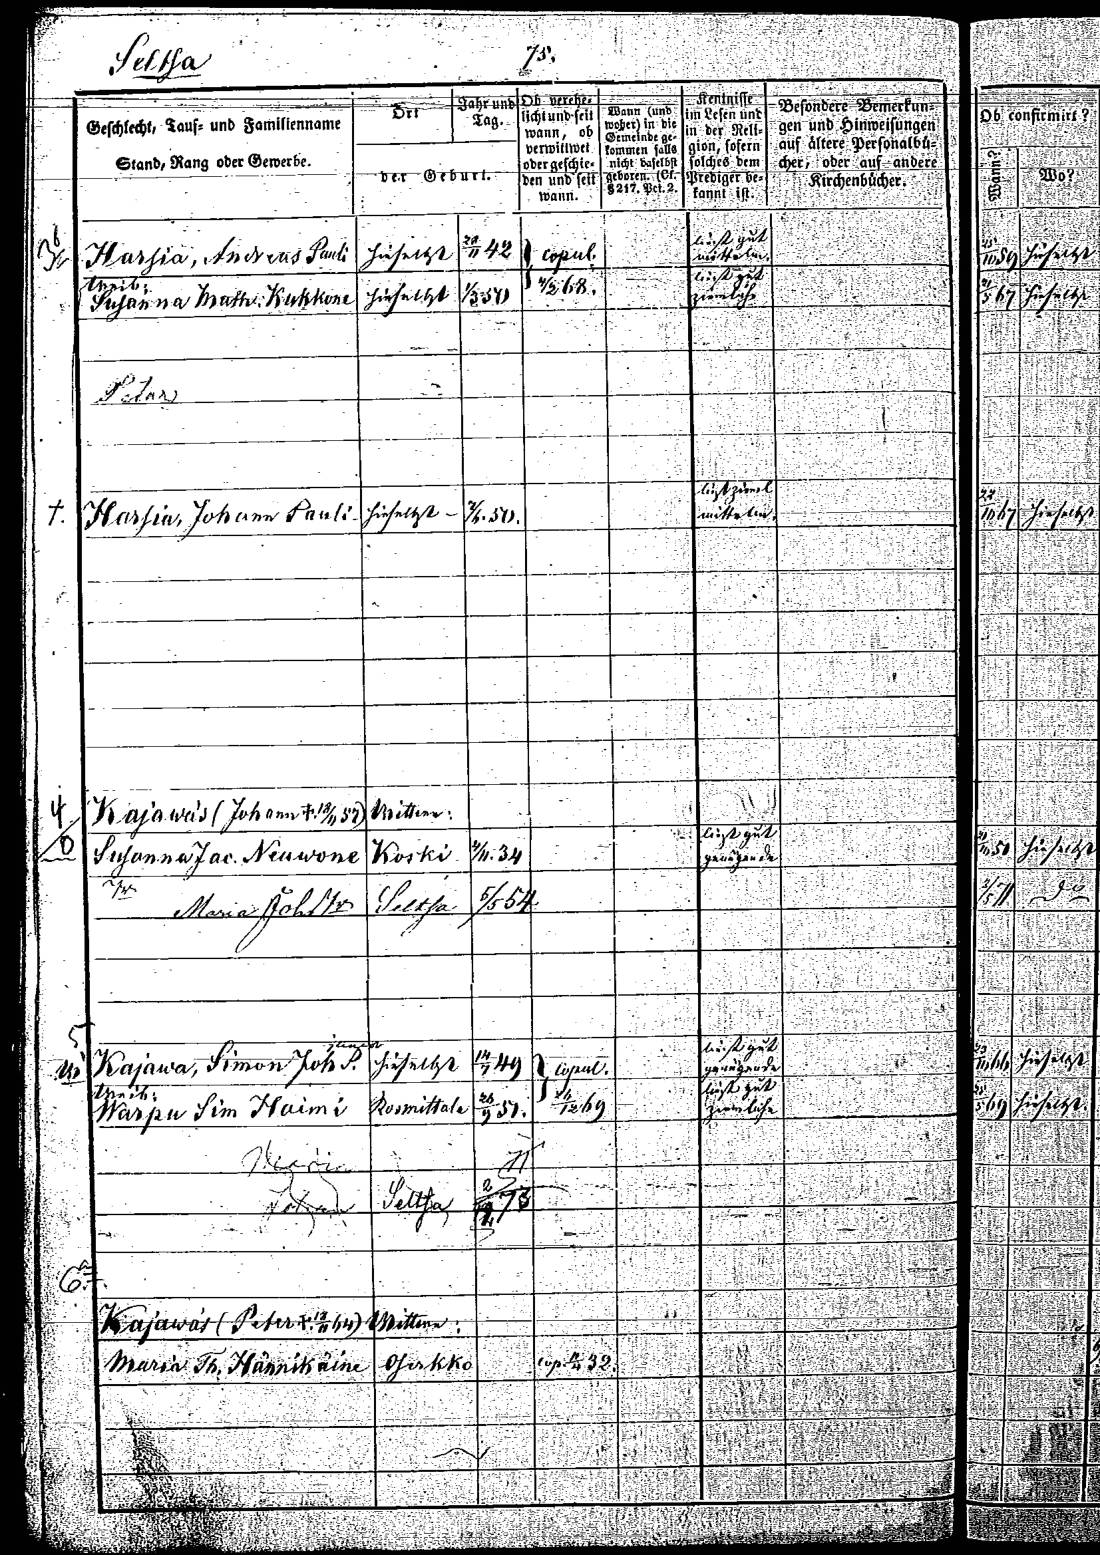 Seltsa 75.
Geschlecht, Tauf- und Familienname
Stand, Rang oder Gewerbe.
Ort
Jahr und Tag.
der Geburt.
Ob verehe-
licht und seit
wann, ob
verwittwet
oder geschie-
den und seit
wann.
Wann (und
woher) in die
Gemeinde ge-
kommen falls
nicht daselbst
geboren. (Cf.
§ 217. Pct. 2.
Kentnisse
im Lesen und
in der Reli-
gion, sofern
solches dem
Prediger be-
kannt ist.
Besondere Bemerkun-
gen und Hinweisungen
auf ältere Personalbü-
cher, oder auf andere
Kirchenbücher.
Ob confirmirt?
Wann? Wo?
Hassia, Andreas Pauli hieselbst 42 copul. liest gut mittelm. 59 hieselbst
Weib:
Susanna Math: Kukkone hieselbst 1/3 50 68. liest gut ziemlich 67 hieselbst
Peter
†. Hassia, Johann Pauli hieselbst 50. liest zieml mittelm. 67 hieselbst
4 Kajawas (Johann †. 57) Wittwe:
Susanna Jac. Neuwone Koski 34 liest gut genügende 50 hieselbst
Maria Seltsa 5/5 54 71 do
5
Kajawa, Simon Joh. P. junior hieselbst 49 copul. liest gut genügende 66 hieselbst
Weib:
Warpu Sim Haimi Rosmittala 51. 69 liest gut ziemliche 69 hieselbst.
Maria 71
Johan Seltsa 73
6
Kajawas (Peter †. 64) Wittwe:
Maria Th. Hännikäine Oserkko cop. 32.